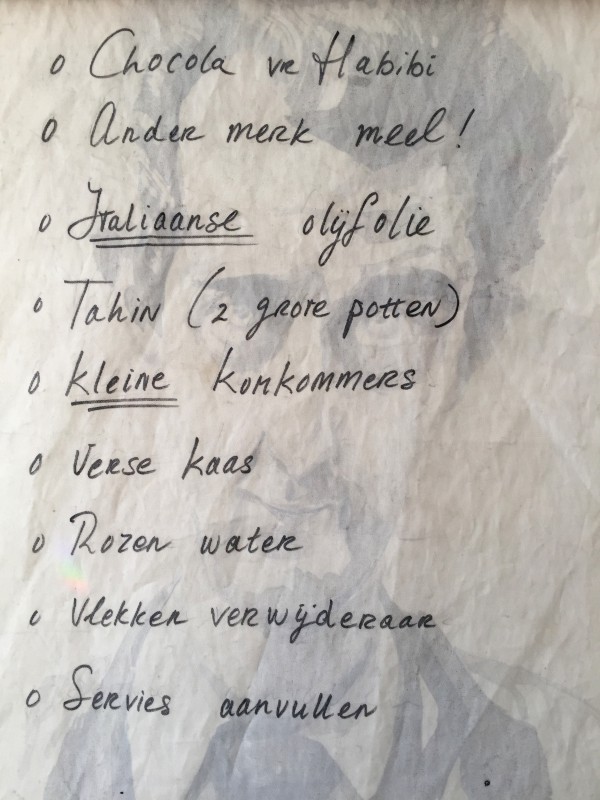 o Chocola vr Habibi
o Ander merk meel!
o Italiaanse olijfolie
o Tahin (2 grote potten)
o kleine komkommers
o Verse kaas
o Rozen water
o Vlekken verwijderaar
o Servies aanvullen